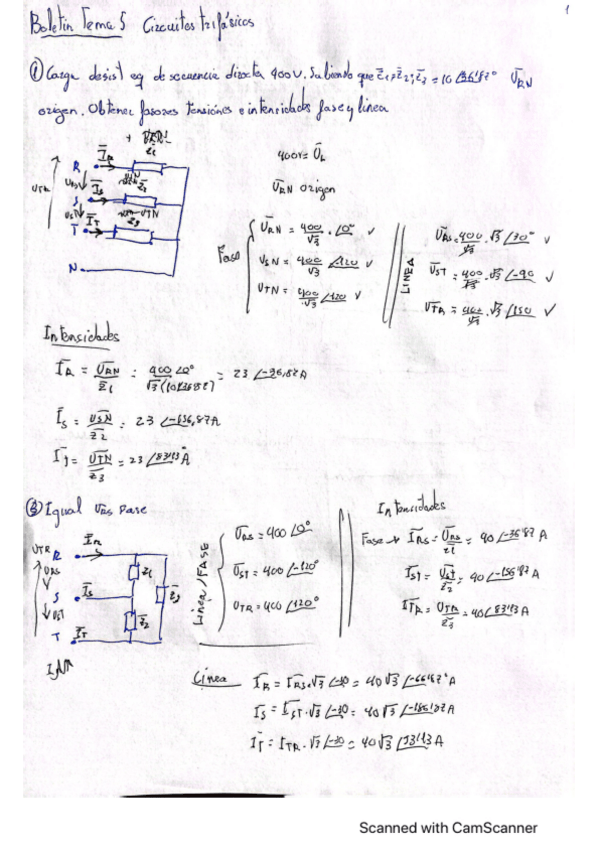 1
Boletín Tema 5 Circuitos trifásicos
① Carga desist eq de secuencia directa 400V. Sabiendo que Z̄1, Z̄2, Z̄3 = 10∠36'87° ŪRN
origen. Obtener fasores tensiones e intensidades fase y línea
400V = ŪL
ŪRN origen
R
ĪR
Z1
URS
ĪS
S
UST
ĪT
T
UTR
N
Fase
ŪRN = 400/√3 · ∠0° ✓
USN = 400/√3 ∠-120 ✓
UTN = 400/√3 ∠120 ✓
LINEA
ŪRS = 400/√3 · √3 ∠30° ✓
ŪST = 400/√3 · √3 ∠-90 ✓
ŪTR = 400/√3 · √3 ∠150 ✓
Intensidades
ĪR = ŪRN/Z̄1 = 400∠0°/√3(10∠36'87) = 23 ∠-36,87A
ĪS = USN/Z̄2 = 23 ∠-156,87A
ĪT = UTN/Z̄3 = 23 ∠83'13° A
② Igual URS fase
UTR
R
ĪR
URS
Z1
S
ĪS
Z3
UST
Z2
T
ĪT
Linea/FASE
ŪRS = 400∠0°
ŪST = 400∠-120°
UTR = 400∠120°
Intensidades
Fase → ĪRS = ŪRS/Z1 = 40∠-36'87 A
ĪST = UST/Z2 = 40∠-156'87 A
ĪTR = UTR/Z3 = 40∠83'13 A
Linea
ĪR = ĪRS·√3 ∠-30 = 40√3 ∠-66'87° A
ĪS = ĪST·√3 ∠-30 = 40√3 ∠-186'87 A
ĪT = ITR·√3 ∠-30 = 40√3 ∠53'13 A
Scanned with CamScanner